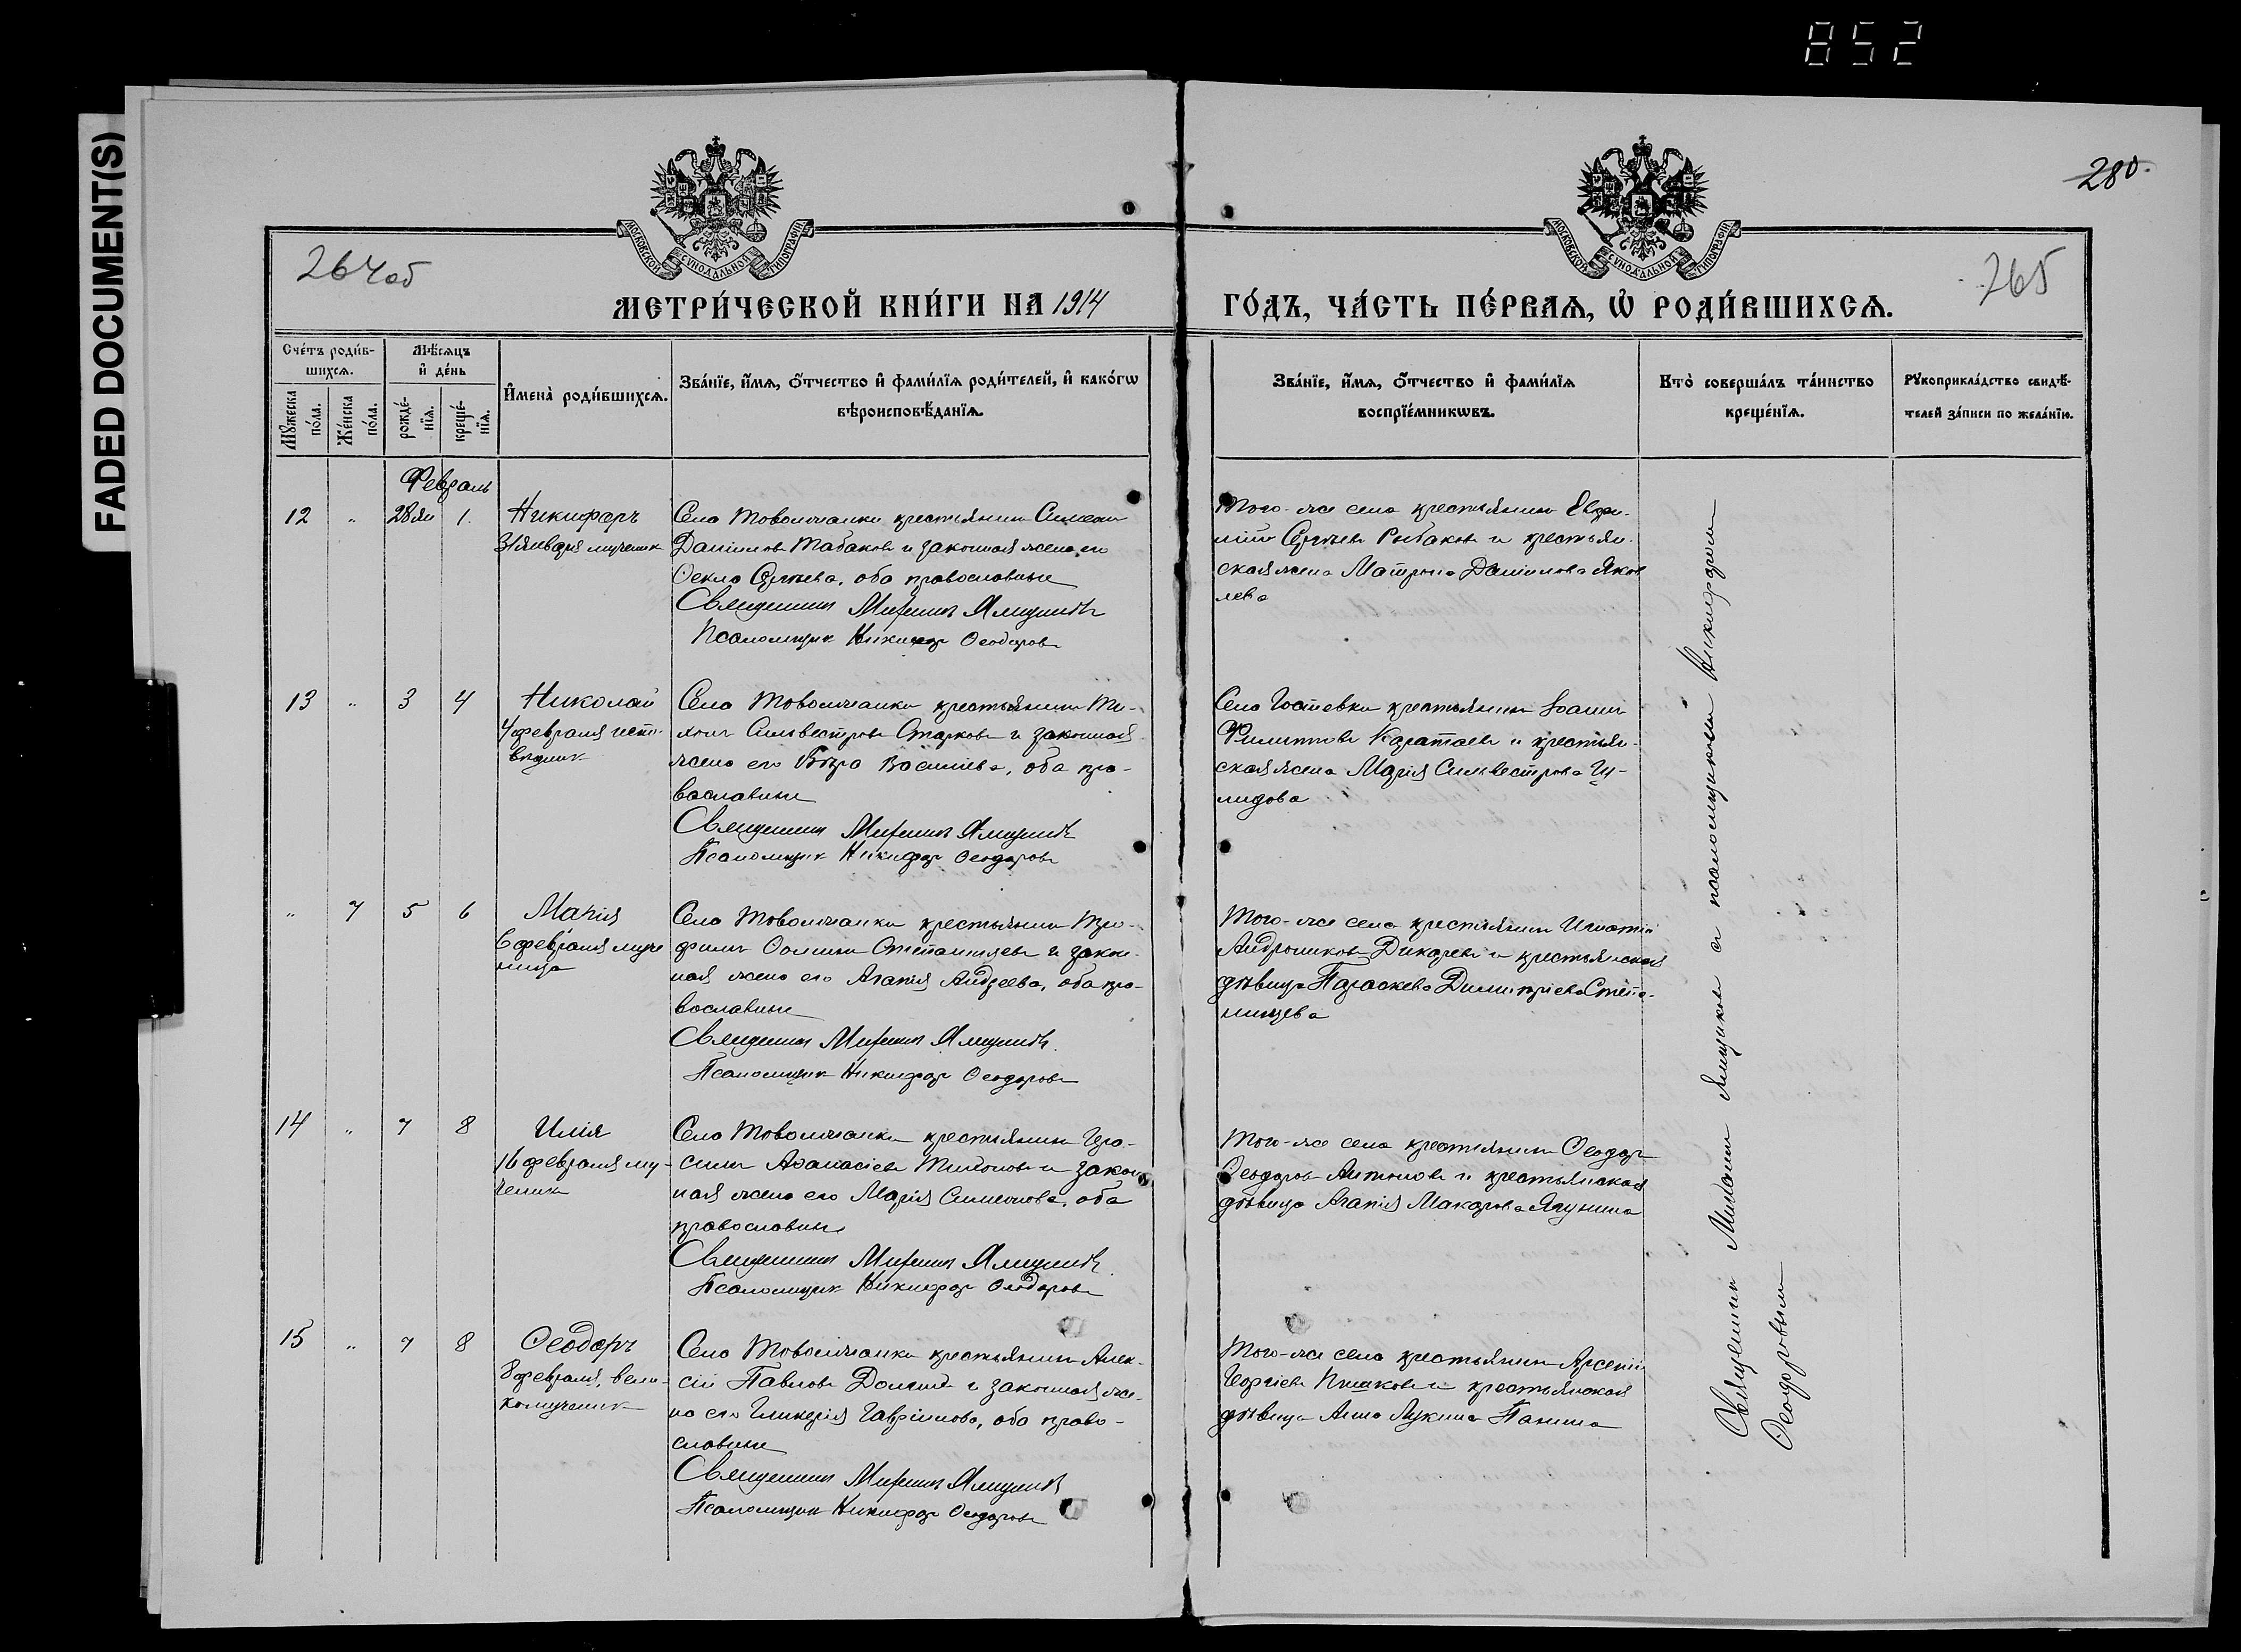 852
FADED DOCUMENT(S)
280.
264об
265
МОСКОВСКОЙ СѴНОДАЛЬНОЙ ТИПОГРАФІИ
МОСКОВСКОЙ СѴНОДАЛЬНОЙ ТИПОГРАФІИ
МЕТРИ́ЧЕСКОЙ КНИ́ГИ НА 1914
ГО́ДЪ, ЧА́СТЬ ПЕ́РВАѦ, Ѡ҆ РОДИ́ВШИХСѦ.
Сче́тъ роди́в-
шихсѧ.
Мѣ́сѧцъ
и҆ де́нь
Мꙋ́жеска
по́ла.
Же́нска
по́ла.
рожде́-
нїѧ.
креще́-
нїѧ.
И҆мена̀ роди́вшихсѧ.
Зва́нїе, и҆́мѧ, ѻ҆́тчество и҆ фами́лїѧ роди́телей, и҆ како́гѡ
вѣроисповѣ́данїѧ.
Зва́нїе, и҆́мѧ, ѻ҆́тчество и҆ фами́лїѧ
воспрїе́мникѡвъ.
Кто̀ соверша́лъ та́инство
креще́нїѧ.
Рꙋкоприкла́дство свидѣ́-
телей за́писи по жела́нїю.
Февраль
12 " 28 ян 1. Никифоръ
31 января мученик
Села Товолжанки крестьянин Симеон
Даниилов Табаков и законная жена его
Ѳекла Сергиева, оба православные
Священник Митрофан
Псаломщик Никифор Ѳеодоров
Того-же села крестьянин
Сергиев Рыбаков и крестьян-
ская жена Матрона Даниилова Яков
лева
13 " 3 4 Николай
4 февраля испо-
ведник
Села Товолжанки крестьянин Ти-
хон Сильвестров Старков и законная
жена его Вѣра Василиева, оба пра-
вославные
Священник Митрофан
Псаломщик Никифор Ѳеодоров
Села Гостевки крестьянин Іоанн
Филиппов Каратаев и крестьян-
ская жена Марія Сильвестрова
" 7 5 6 Марія
6 февраля муче
ница
Села Товолжанки крестьянин Тро-
фим Ѳомин Степанищев и закон-
ная жена его Агапія Андреева, оба пра-
вославные
Священник Митрофан
Псаломщик Никифор Ѳеодоров
Того-же села крестьянин Игнатій
Андроников Дикарев и крестьянская
дѣвица Параскева Димитріева Степа-
нищева
14 " 7 8 Илія
16 февраля му-
ченик
Села Товолжанки крестьянин Гера-
сим Аѳанасіев Тимонов и закон
ная жена его Марія Симеонова, оба
православные
Священник Митрофан
Псаломщик Никифор Ѳеодоров
Того-же села крестьянин Ѳеодор
Ѳеодоров Антонов и крестьянская
дѣвица Агапія Макарова Ягунина
15 " 7 8 Ѳеодоръ
8 февраля, вели-
комученик
Села Товолжанки крестьянин Алек-
сій Павлов и законная же-
на его Гликерія Гавріилова, оба право-
славные
Священник Митрофан
Псаломщик Никифор Ѳеодоров
Того-же села крестьянин Арсеній
Георгіев и крестьянская
дѣвица Анна Лукина Панина
Священник с псаломщиком Никифором
Ѳеодоровым